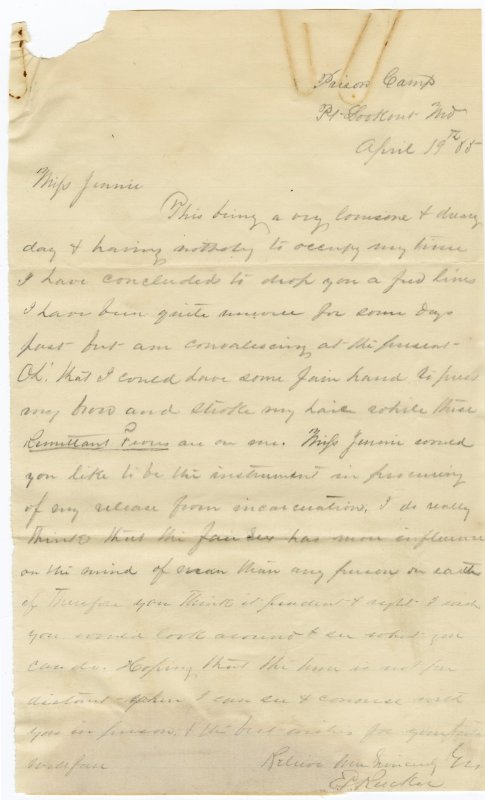 Prison Camp
Pt Lookout Md
April 19th 65
Miss Jennie
This being a very lonesome & dreary
day & having nothing to occupy my time
I have concluded to drop you a few lines
I have been quite unwell for some days
past but am convalescing at the present-
Oh! that I could have some fair hand to press
my brow and stroke my hair while these
Remittant Fevers are on me. Miss Jennie would
you like to be the instrument in procuring
of my release from incarceration, I do really
think that the fair sex has more influence
on the mind of man than any person on earth
if Therefore you think it prudent & right I wish
you would look around & see what you
can do. Hoping that the time is not far
distant when I can see & converse with
you in person, & the best wishes for your
welfare
Believe me Sincerely Yrs
Rucker